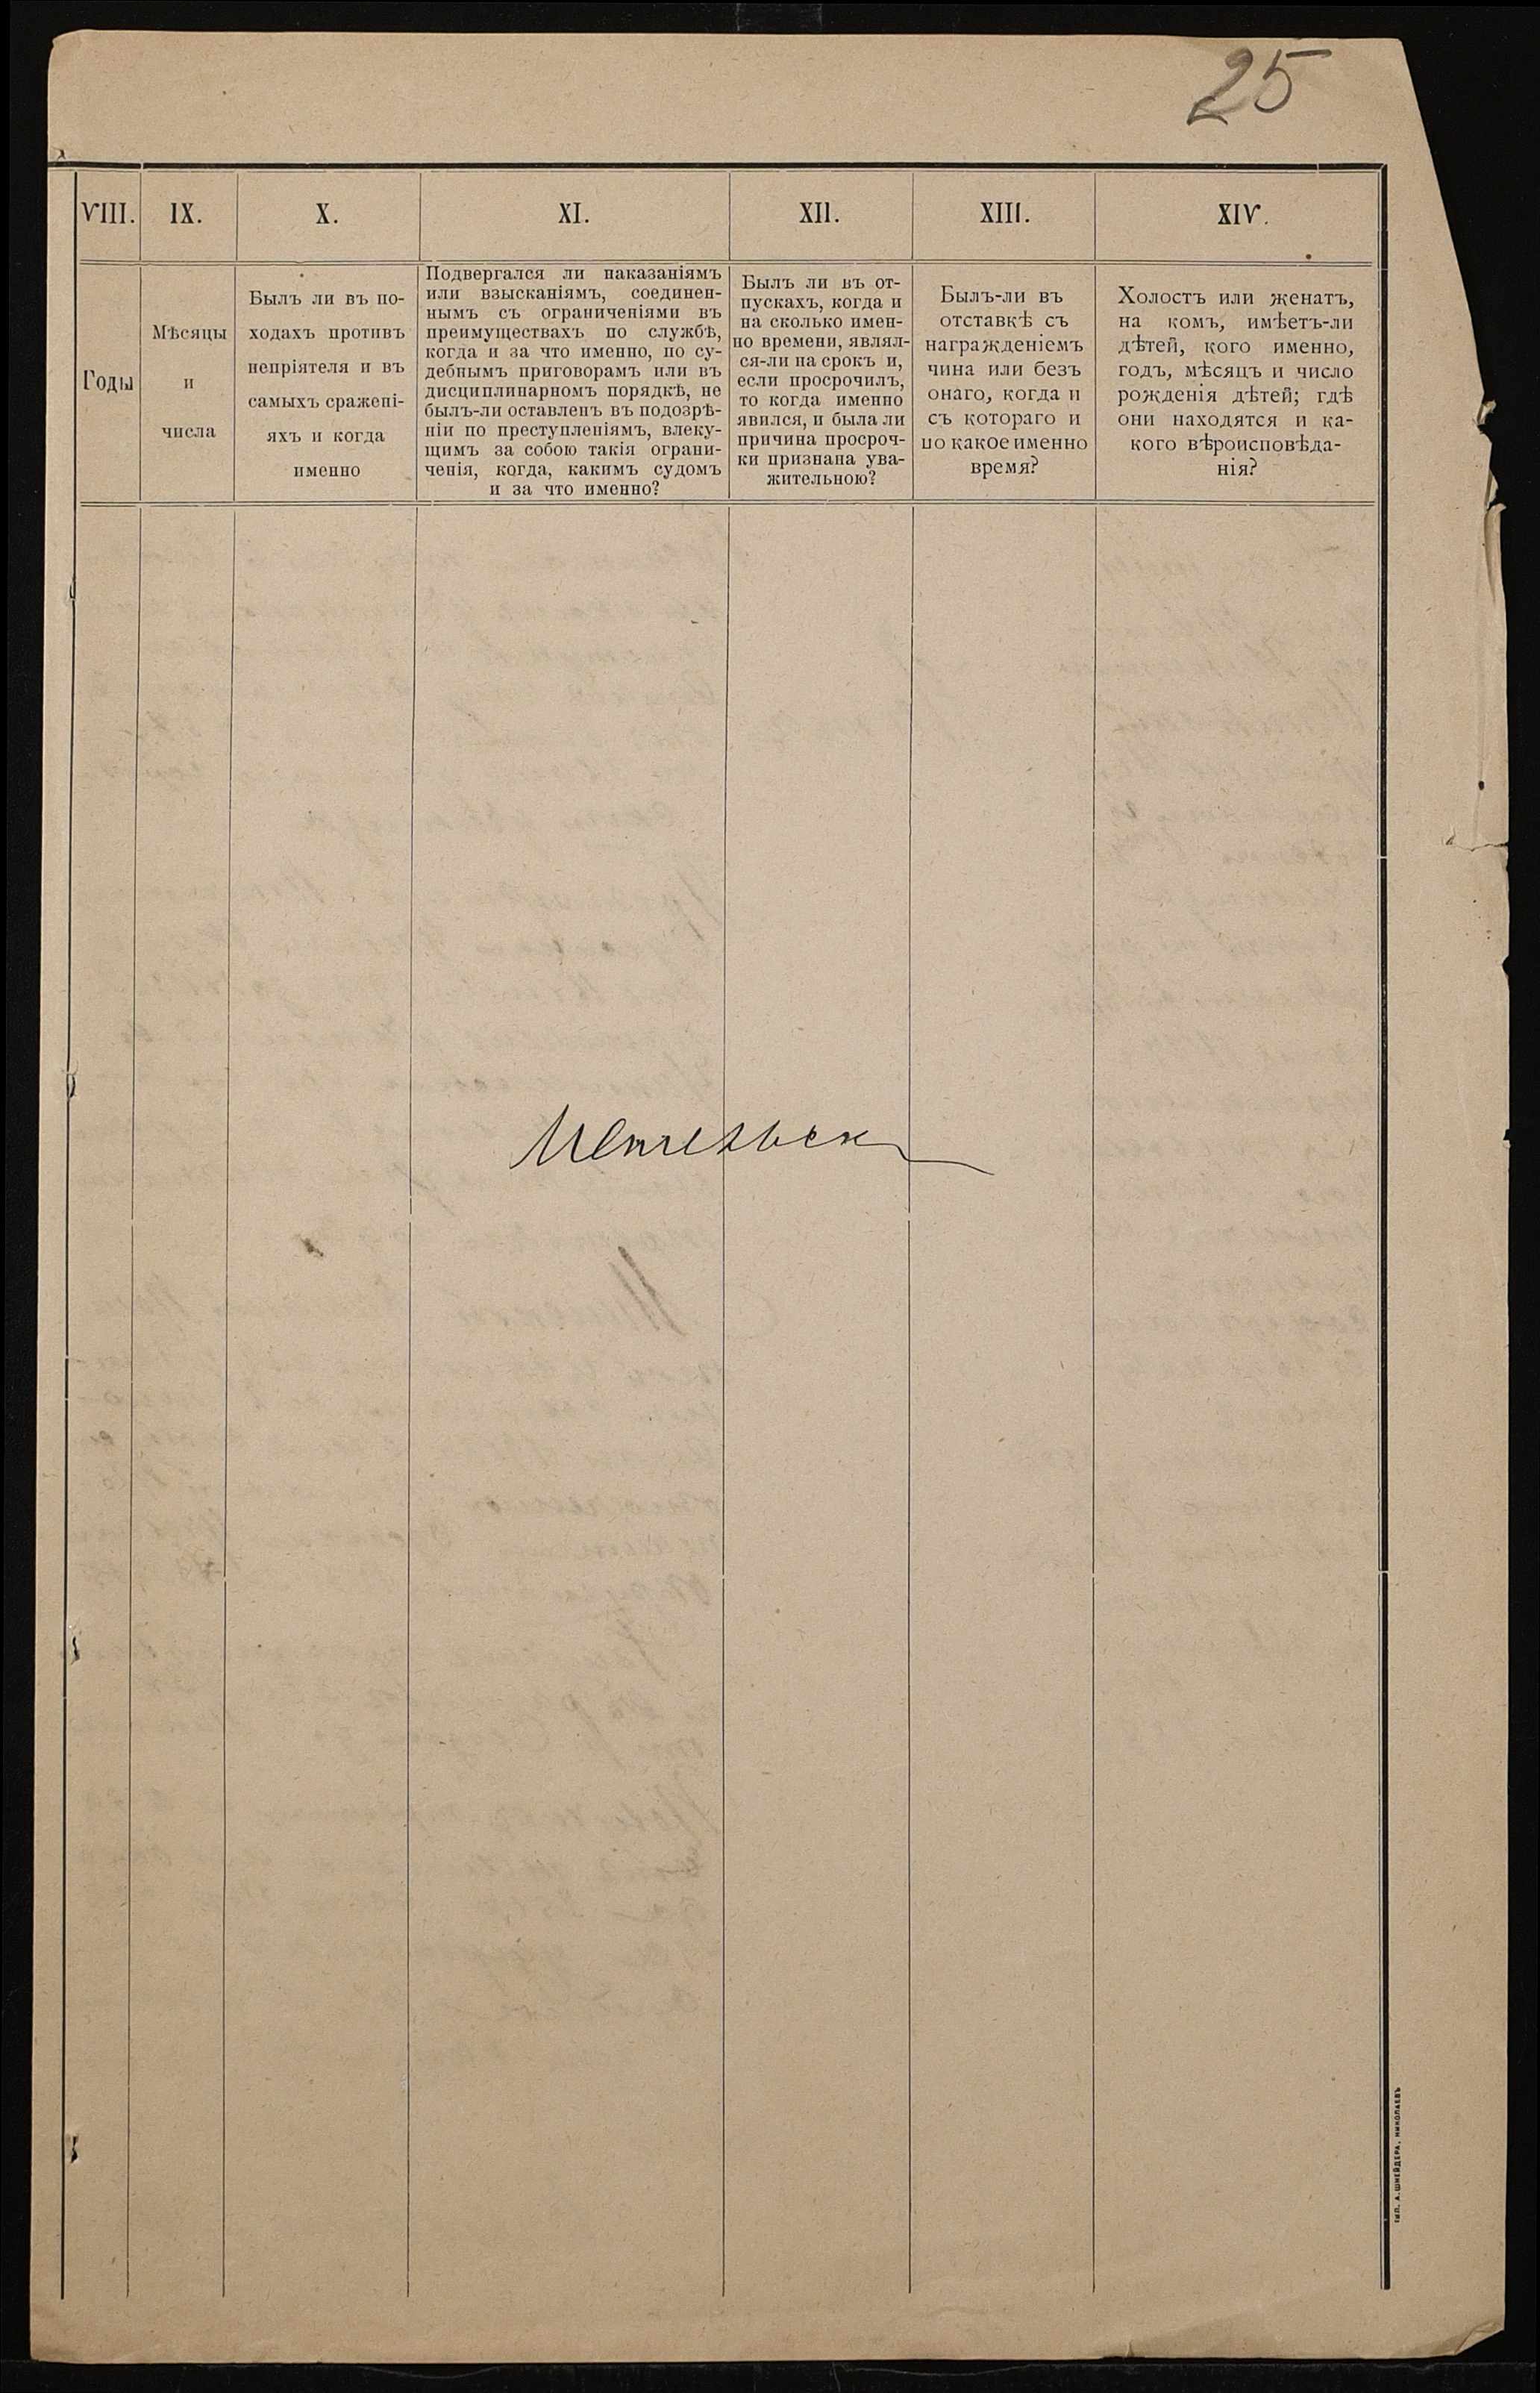 25
VIII. IX. X. XI. XII. XIII. XIV.
Годы
Мѣсяцы
и
числа
Былъ ли въ по-
ходахъ противъ
непріятеля и въ
самыхъ сражені-
яхъ и когда
именно
Подвергался ли наказаніямъ
или взысканіямъ, соединен-
нымъ съ ограниченіями въ
преимуществахъ по службѣ,
когда и за что именно, по су-
дебнымъ приговорамъ или въ
дисциплинарномъ порядкѣ, не
былъ-ли оставленъ въ подозрѣ-
ніи по преступленіямъ, влеку-
щимъ за собою такія ограни-
ченія, когда, какимъ судомъ
и за что именно?
Былъ ли въ от-
пускахъ, когда и
на сколько имен-
но времени, являл-
ся-ли на срокъ и,
если просрочилъ,
то когда именно
явился, и была ли
причина просроч-
ки признана ува-
жительною?
Былъ-ли въ
отставкѣ съ
награжденіемъ
чина или безъ
онаго, когда и
съ котораго и
по какое именно
время?
Холостъ или женатъ,
на комъ, имѣетъ-ли
дѣтей, кого именно,
годъ, мѣсяцъ и число
рожденія дѣтей; гдѣ
они находятся и ка-
кого вѣроисповѣда-
нія?
ТИП. А. ШНЕЙДЕРА, НИКОЛАЕВЪ